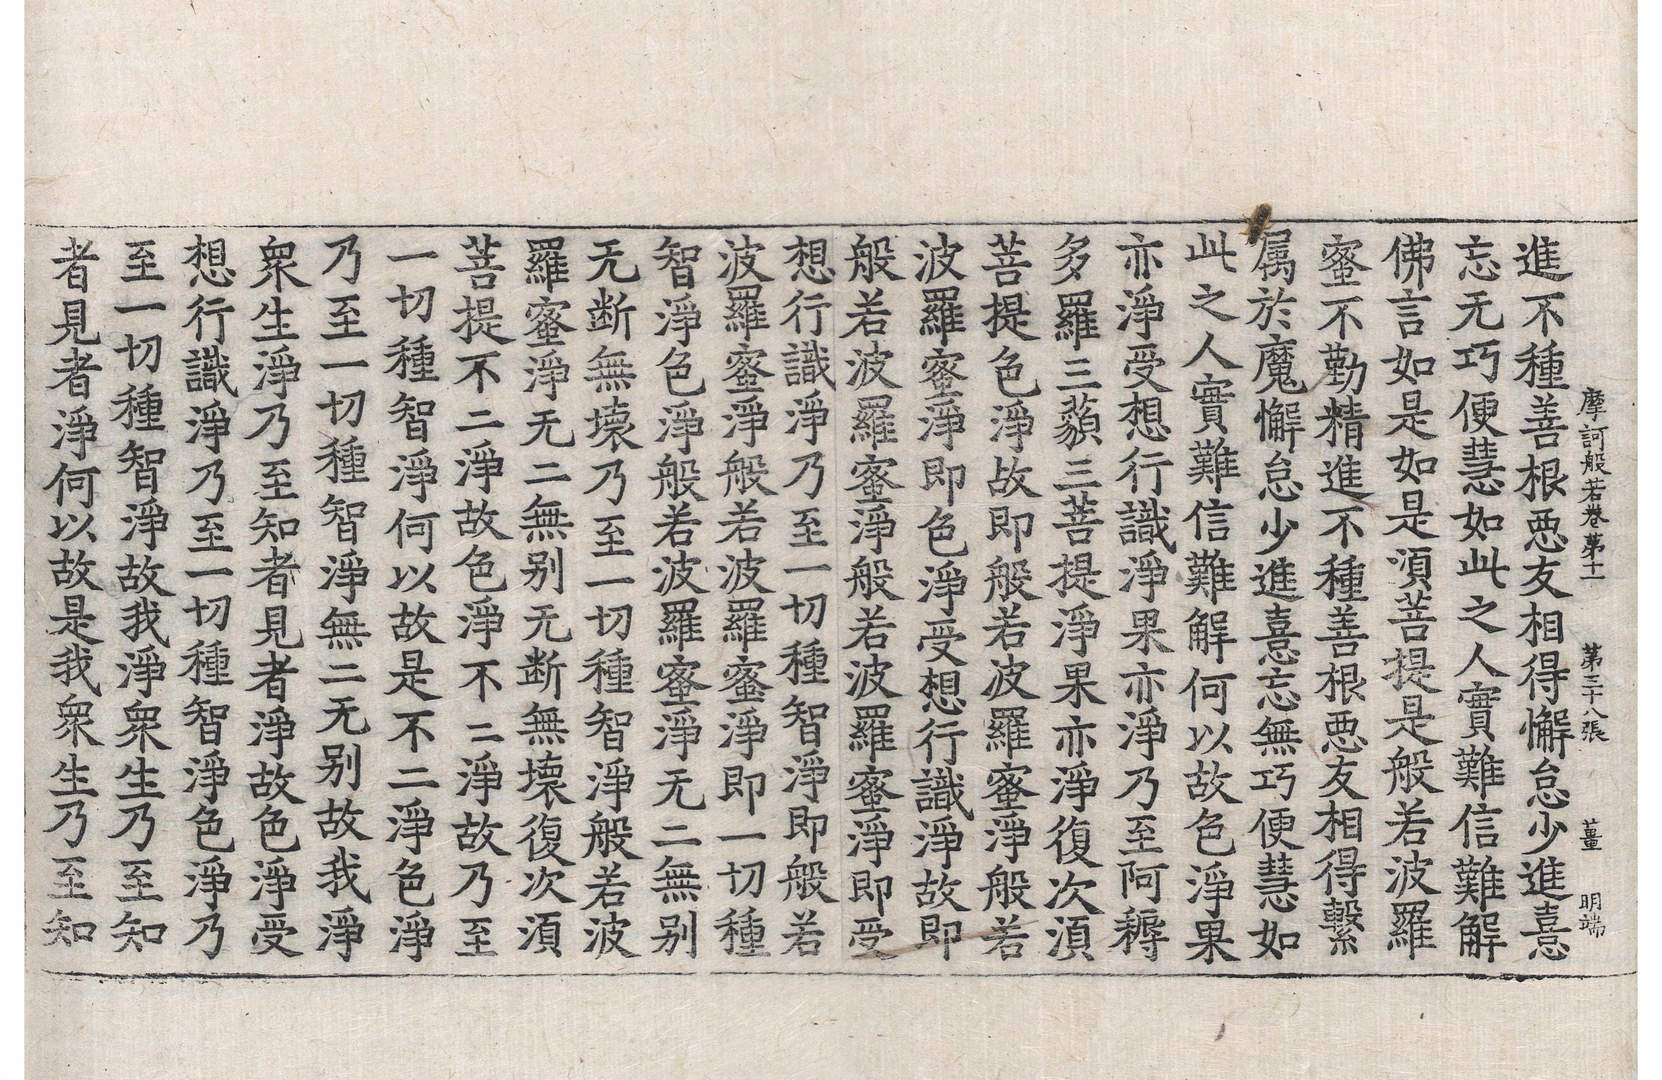 摩訶般若卷第十一 第三十八張 薑 明端
進不種善根惡友相得懈怠少進憙
忘无巧便慧如此之人實難信難解
佛言如是如是湏菩提是般若波羅
蜜不勤精進不種善根惡友相得繫
属於魔懈怠少進憙忘無巧便慧如
此之人實難信難解何以故色淨果
亦淨受想行識淨果亦淨乃至阿耨
多羅三藐三菩提淨果亦淨復次湏
菩提色淨故即般若波羅蜜淨般若
波羅蜜淨即色淨受想行識淨故即
般若波羅蜜淨般若波羅蜜淨即受
想行識淨乃至一切種智淨即般若
波羅蜜淨般若波羅蜜淨即一切種
智淨色淨般若波羅蜜淨无二無别
无断無壞乃至一切種智淨般若波
羅蜜淨无二無别无断無壞復次湏
菩提不二淨故色淨不二淨故乃至
一切種智淨何以故是不二淨色淨
乃至一切種智淨無二无别故我淨
衆生淨乃至知者見者淨故色淨受
想行識淨乃至一切種智淨色淨乃
至一切種智淨故我淨衆生乃至知
者見者淨何以故是我衆生乃至知